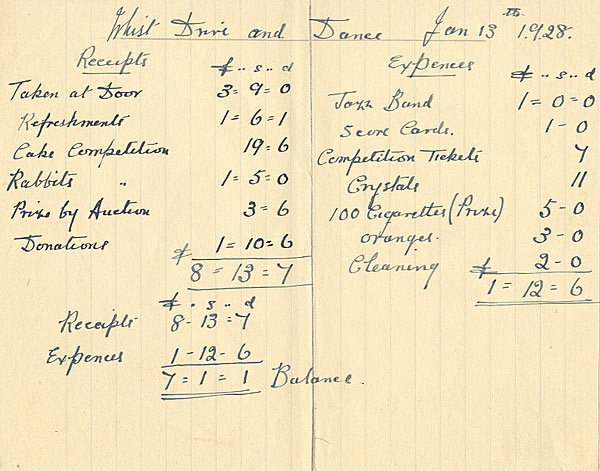 Whist Drive and Dance Jan 13th 1928.
Receipts
£ .. s .. d
Taken at Door 3 = 9 = 0
Refreshments 1 = 6 = 1
Cake Competition 19 = 6
Rabbits " 1 = 5 = 0
Prize by Auction 3 = 6
Donations £ 1 = 10 = 6
8 = 13 = 7
£ . s .. d
Receipts 8 - 13 = 7
Expences 1 - 12 - 6
7 = 1 = 1 Balance.
Expences
£ .. s .. d
Jazz Band 1 = 0 = 0
Score Cards. 1 - 0
Competition Tickets 7
Crystals 11
100 Cigarettes (Prize) 5 - 0
oranges. 3 - 0
Cleaning £ 2 - 0
1 = 12 = 6